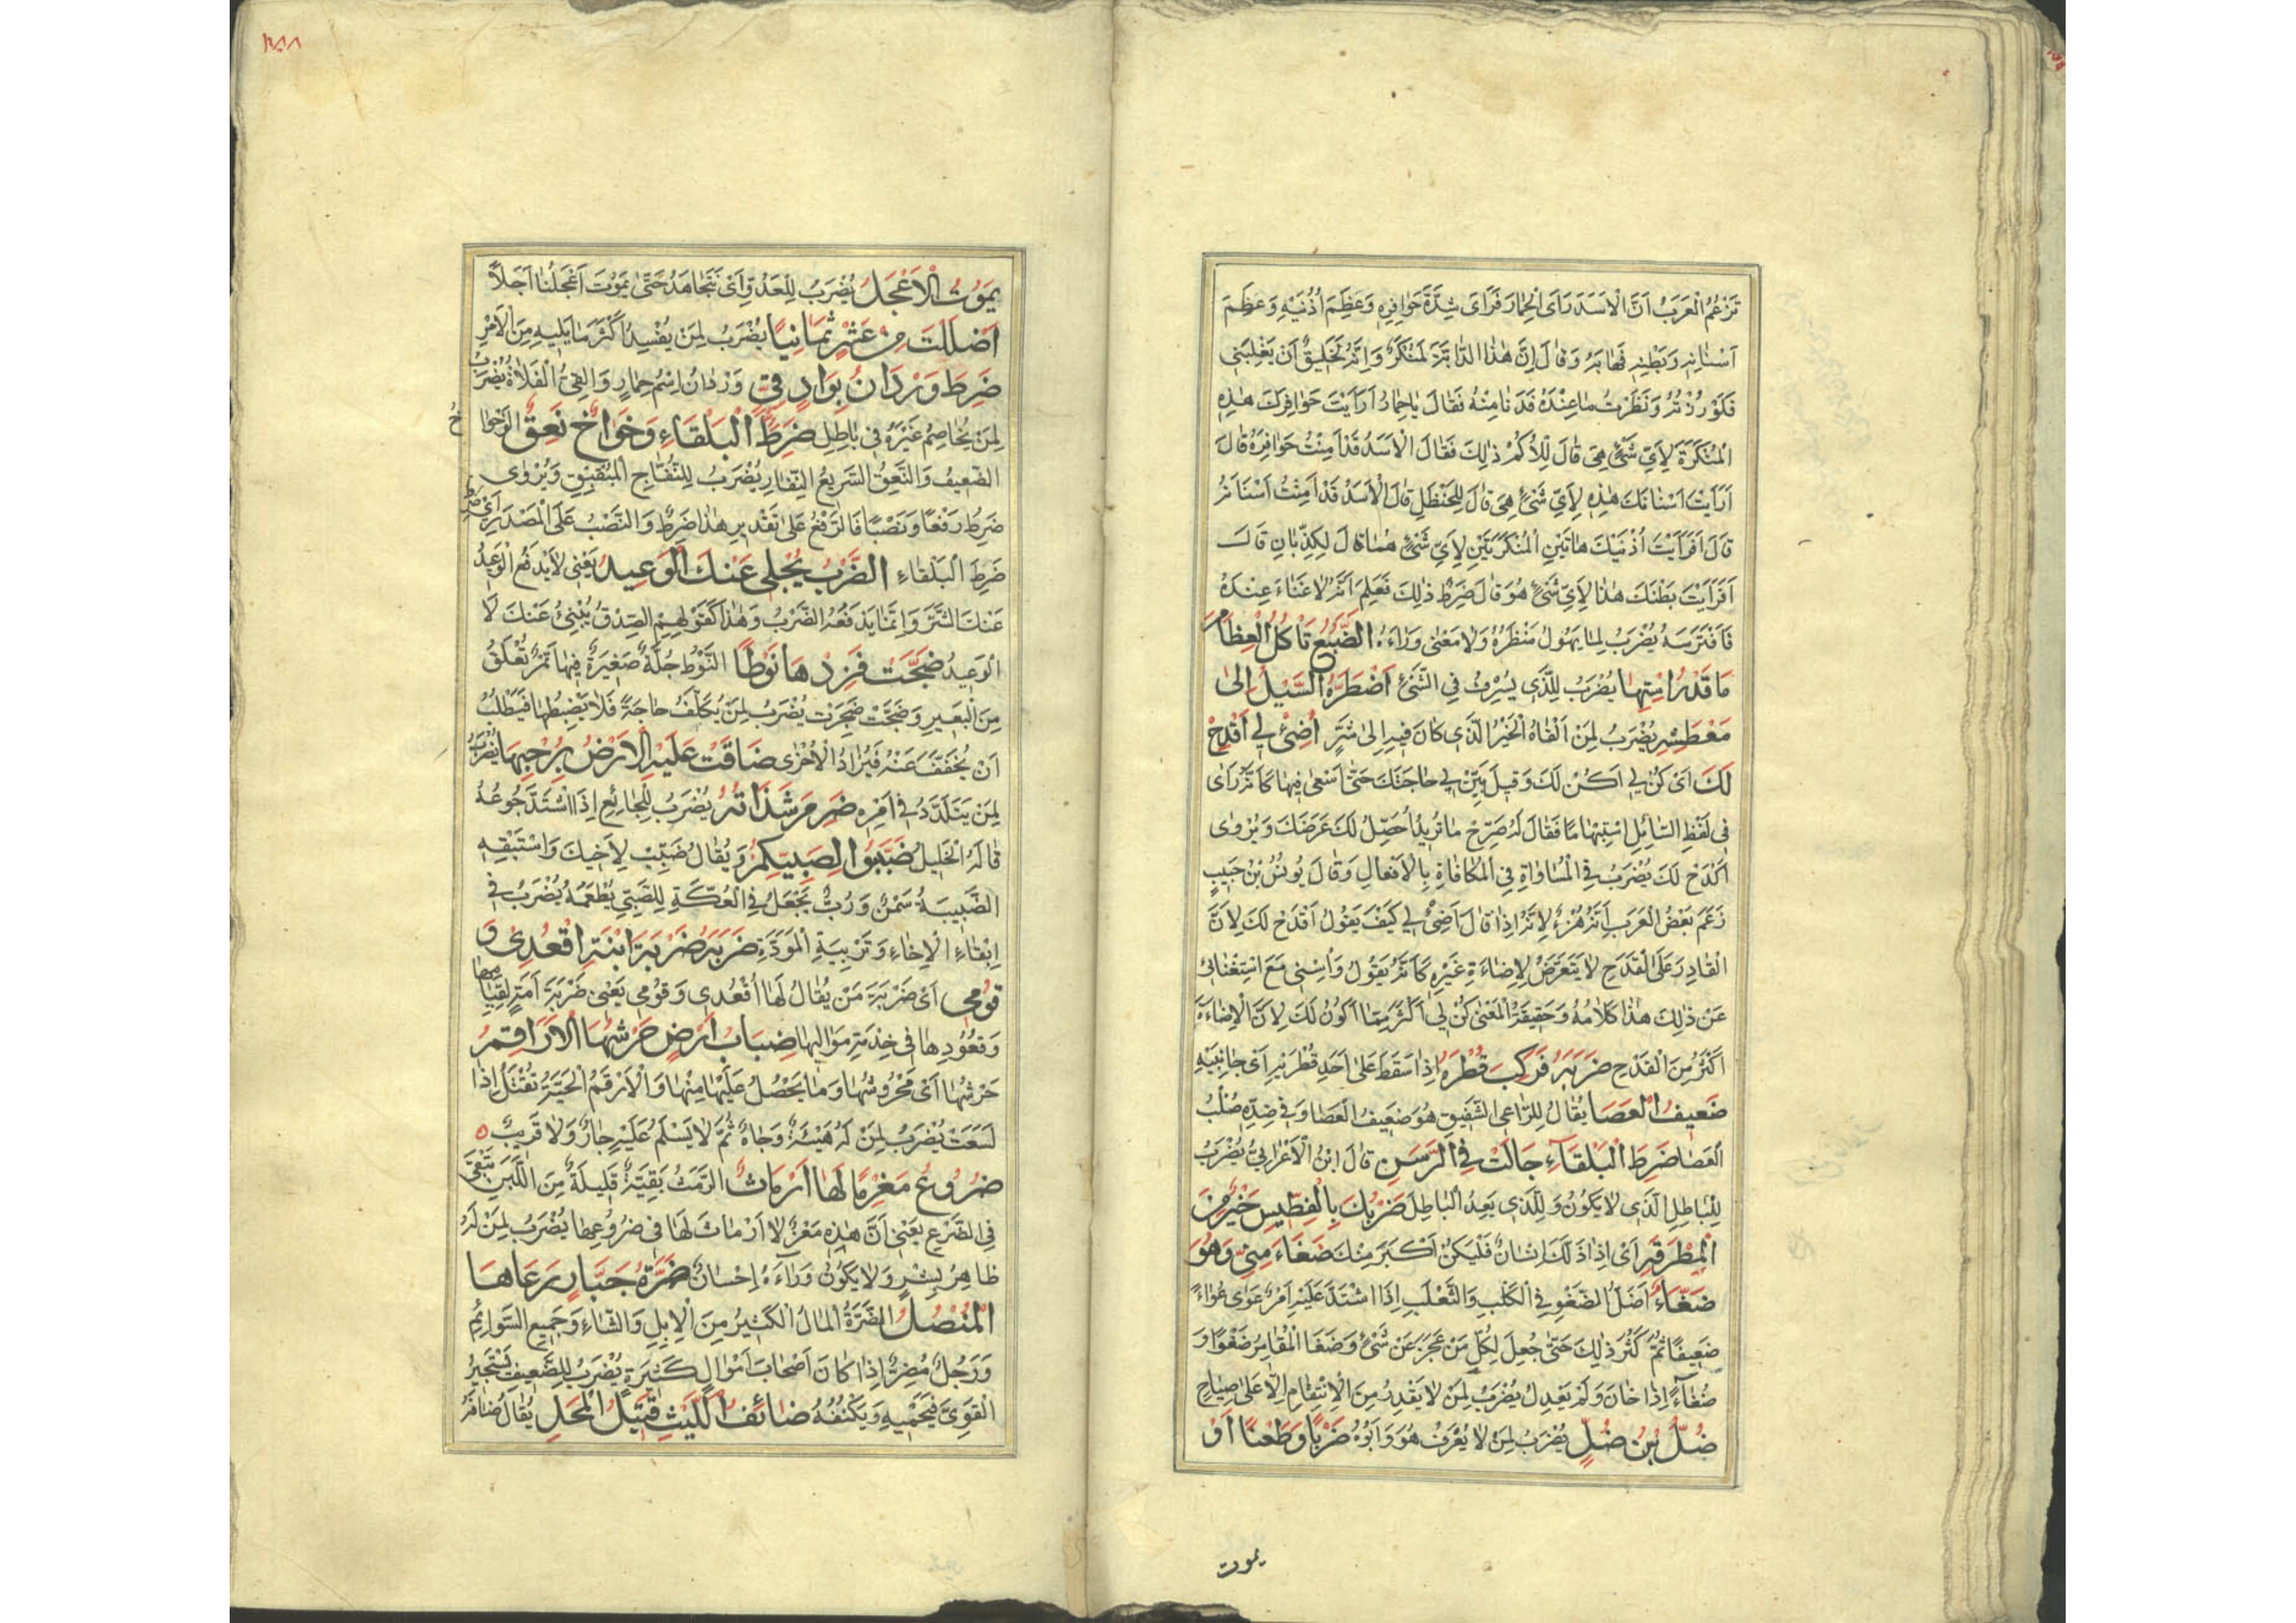 تَزْعُمُ الْعَرَبُ اَنَّ الْاَسَدَ رَاَى الْحِمَارَ فَرَاَى شِدَّةَ حَوَافِرِهِ وَعِظَمَ اُذُنَيْهِ وَعِظَمَ
اَسْنَانِهِ وَبَطْنِهِ فَهَابَهُ وَقَالَ اِنَّ هٰذَا الدَّابَّةَ لَمُنْكَرٌ وَاِنَّهُ لَخَلِيقٌ اَنْ يَغْلِبَنِى
فَلَوْ زُرْتُهُ وَنَظَرْتُ مَا عِنْدَهُ فَدَنَا مِنْهُ فَقَالَ يَا حِمَارُ اَرَاَيْتَ حَوَافِرَكَ هٰذِهِ
الْمُنْكَرَةَ لِاَىِّ شَىْءٍ هِىَ قَالَ لِلْاُكُمْ ذٰلِكَ فَقَالَ الْاَسَدُ قَدْ اَمِنْتُ حَوَافِرَهُ قَالَ
اَرَاَيْتَ اَسْنَانَكَ هٰذِهِ لِاَىِّ شَىْءٍ هِىَ قَالَ لِلْحَنْظَلِ قَالَ الْاَسَدُ قَدْ اَمِنْتُ اَسْنَانَهُ
قَالَ اَفَرَاَيْتَ اُذُنَيْكَ هَاتَيْنِ الْمُنْكَرَتَيْنِ لِاَىِّ شَىْءٍ هُمَا قَالَ لِلذِّبَانِ قَالَ
اَفَرَاَيْتَ بَطْنَكَ هٰذَا لِاَىِّ شَىْءٍ هُوَ قَالَ ضَرِطٌ ذٰلِكَ فَعَلِمَ اَنَّهُ لَا غَنَاءَ عِنْدَهُ
فَافْتَرَسَهُ يُضْرَبُ لِمَا يَهُولُ مَنْظَرُهُ وَلَا مَعْنٰى وَرَاءَهُ الضَّبُعُ تَاْكُلُ الْعِظَامَ
مَا قَدْرُ اسْتِهَا يُضْرَبُ لِلَّذِى يُسْرِفُ فِى الشَّىْءِ اَضْطَرَّهُ السَّيْلُ اِلٰى
مَعْطَشِهِ يُضْرَبُ لِمَنْ اَلْقَاهُ الْخَيْرُ الَّذِى كَانَ فِيهِ اِلٰى شَرٍّ اَضِئْ لِى اَقْدَحْ
لَكَ اَىْ كُنْ لِى اَكُنْ لَكَ وَقِيلَ بَيِّنْ لِى حَاجَتَكَ حَتّٰى اَسْعٰى فِيهَا كَاَنَّهُ رَاٰى
فِى لَفْظِ السَّائِلِ اسْتِبْهَامًا فَقَالَ لَهُ صَرِّحْ مَا تُرِيدُ اُحَصِّلْ لَكَ غَرَضَكَ وَيُرْوٰى
اَكْدَحْ لَكَ يُضْرَبُ فِى الْمُسَاوَاةِ فِى الْمُكَافَاةِ بِالْاَفْعَالِ وَقَالَ يُونُسُ بْنُ حَبِيبٍ
زَعَمَ بَعْضُ الْعَرَبِ اَنَّهُ هُزْءٌ لِاَنَّهُ اِذَا قَالَ اَضِئْ لِى كَيْفَ يَقُولُ اَقْدَحْ لَكَ لِاَنَّ
الْقَادِرَ عَلَى الْقَدْحِ لَا يَتَعَرَّضُ لِاِضَاءَةِ غَيْرِهِ كَاَنَّهُ يَقُولُ وَاسِنِى مَعَ اسْتِغْنَائِى
عَنْ ذٰلِكَ هٰذَا كَلَامُهُ وَحَقِيقَةُ الْمَعْنٰى كُنْ لِى اَكْثَرَ مِمَّا اَكُونُ لَكَ لِاَنَّ الْاِضَاءَةَ
اَكْثَرُ مِنَ الْقَدْحِ ضَرَبَهُ فَرَكِبَ قُطْرَهُ اِذَا سَقَطَ عَلٰى اَحَدِ قُطْرَيْهِ اَىْ جَانِبَيْهِ
ضَعِيفُ الْعَصَا يُقَالُ لِلرَّاعِى الشَّفِيقِ هُوَ ضَعِيفُ الْعَصَا وَفِى ضِدِّهِ صُلْبُ
الْعَصَا ضَرِطَ الْبَلْقَاءِ جَالَتْ فِى الرَّسَنِ قَالَ ابْنُ الْاَعْرَابِىِّ يُضْرَبُ
لِلْبَاطِلِ الَّذِى لَا يَكُونُ وَلِلَّذِى يَعِدُ الْبَاطِلَ ضَرْبُكَ بِالْفِطِّيسِ خَيْرٌ مِنَ
الْمِطْرَقَةِ اَىْ اِذَا اَذَلَّكَ اِنْسَانٌ فَلْيَكُنْ اَكْبَرَ مِنْكَ ضَغَاءَ مِنِّى وَهُوَ
ضَغَّاءٌ اَصْلُ الضَّغْوِ فِى الْكَلْبِ وَالثَّعْلَبِ اِذَا اشْتَدَّ عَلَيْهِ اَمْرٌ عَوٰى عُوَاءً
ضَعِيفًا ثُمَّ كَثُرَ ذٰلِكَ حَتّٰى جُعِلَ لِكُلِّ مَنْ عَجَزَ عَنْ شَىْءٍ وَضَغَا الْمُقَامِرُ ضَغْوًا وَ
ضُغَاءً اِذَا خَانَ وَلَمْ يَعْدِلْ يُضْرَبُ لِمَنْ لَا يَقْدِرُ مِنَ الْاِنْتِقَامِ اِلَّا عَلٰى صِيَاحٍ
ضُلُّ بْنُ ضُلٍّ يُضْرَبُ لِمَنْ لَا يُعْرَفُ هُوَ وَاَبُوهُ ضَرْبًا وَطَعْنًا اَوْ
يموت
يَمُوتُ الْاَعْجَلُ يُضْرَبُ لِلْعَدُوِّ اَىْ نَتَجَاهَدُ حَتّٰى يَمُوتَ اَعْجَلُنَا اَجَلًا
اَضْلَلْتَ مِنْ عَشْرٍ ثَمَانِيًا يُضْرَبُ لِمَنْ يُفْسِدُ اَكْثَرَ مَا يَلِيهِ مِنَ الْاَمْرِ
ضَرِطَ وَرْدَانُ بِوَادٍ قِىٍّ وَرْدَانُ اِسْمُ حِمَارٍ وَالْقِىُّ الْفَلَاةُ يُضْرَبُ
لِمَنْ يُخَاصِمُ غَيْرَهُ فِى بَاطِلٍ ضَرِطَ الْبَلْقَاءِ وَخْوَاخٌ نَعِقٌ الْوَخْوَاخُ
الضَّعِيفُ وَالنَّعِقُ السَّرِيعُ النِّفَارِ يُضْرَبُ لِلنَّفَّاجِ الْمُتَفَيْهِقِ وَيُرْوٰى
ضَرِطُ رَفْعًا وَنَصْبًا فَالرَّفْعُ عَلٰى تَقْدِيرِ هٰذَا ضَرِطٌ وَالنَّصْبُ عَلَى الْمَصْدَرِ اَىْ ضَرِطَ
ضَرِطَ الْبَلْقَاءِ الضَّرْبُ يُجْلِى عَنْكَ الْوَعِيدُ يَعْنِى لَا يَدْفَعُ الْوَعِيدُ
عَنْكَ الشَّرَّ وَاِنَّمَا يَدْفَعُهُ الضَّرْبُ وَهٰذَا كَقَوْلِهِمِ الصِّدْقُ يُنْبِئُ عَنْكَ لَا
الْوَعِيدُ ضَجَّتْ فَزِدْهَا نَوْطًا النَّوْطُ جُلَّةٌ صَغِيرَةٌ فِيهَا تَمْرٌ تُعَلَّقُ
مِنَ الْبَعِيرِ وَضَجَّتْ ضَجِرَتْ يُضْرَبُ لِمَنْ يُكَلَّفُ حَاجَةً فَلَا يَضْبِطُهَا فَيَطْلُبُ
اَنْ يُخَفَّفَ عَنْهُ فَيُزَادُ الْاُخْرٰى ضَاقَتْ عَلَيْهِ الْاَرْضُ بِرُحْبِهَا يُضْرَبُ
لِمَنْ يَتَلَدَّدُ فِى اَمْرِهِ ضَرِمَ شَذَاتُهُ يُضْرَبُ لِلْجَائِعِ اِذَا اشْتَدَّ جُوعُهُ
قَالَهُ الْخَلِيلُ ضَبِّبُوا لِصَبِيِّكُمْ وَيُقَالُ ضَبِّبْ لِاَخِيكَ وَاسْتَبْقِهِ
الضَّبِيبَةُ سَمْنٌ وَرُبٌّ يُجْعَلُ فِى الْعُكَّةِ لِلصَّبِىِّ يُطْعَمُهُ يُضْرَبُ فِى
اِبْقَاءِ الْاِخَاءِ وَتَرْبِيَةِ الْمَوَدَّةِ ضَرَبَهُ ضَرْبَةَ ابْنَةِ اقْعُدِى وَ
قُومِى اَىْ ضَرْبَةَ مَنْ يُقَالُ لَهَا اُقْعُدِى وَقُومِى يَعْنِى ضَرْبَةَ اَمَةٍ لِقِيَامِهَا
وَقُعُودِهَا فِى خِدْمَةِ مَوَالِيهَا ضِبَابُ اَرْضٍ حَرْشُهَا الْاَرَاقِمُ
حَرْشُهَا اَىْ مَحْرُوشُهَا وَمَا يَحْصُلُ عَلَيْهَا مِنْهَا وَالْاَرْقَمُ الْحَيَّةُ تَقْتُلُ اِذَا
لَسَعَتْ يُضْرَبُ لِمَنْ لَهُ هَيْئَةٌ وَجَاهٌ ثُمَّ لَا يَسْلَمُ عَلَيْهِ جَارٌ وَلَا قَرِيبٌ
ضُرُوعُ مَعْزٍ مَا لَهَا اَرْمَاثٌ الرَّمَثُ بَقِيَّةٌ قَلِيلَةٌ مِنَ اللَّبَنِ تَبْقٰى
فِى الضَّرْعِ يَعْنِى اَنَّ هٰذِهِ مَعْزٌ لَا اَرْمَاثَ لَهَا فِى ضُرُوعِهَا يُضْرَبُ لِمَنْ لَهُ
ظَاهِرُ بِشْرٍ وَلَا يَكُونُ وَرَاءَهُ اِحْسَانٌ ضَرَّةُ جَبَّارٍ رَعَاهَا
الْمُنْصُلُ الضَّرَّةُ الْمَالُ الْكَثِيرُ مِنَ الْاِبِلِ وَالشَّاءِ وَجَمِيعِ السَّوَائِمِ
وَرَجُلٌ مُضِرٌّ اِذَا كَانَ اَصْحَابَ اَمْوَالٍ كَثِيرَةٍ يُضْرَبُ لِلضَّعِيفِ يَسْتَجِيرُ
الْقَوِىَّ فَيَحْمِيهِ وَيَكْنُفُهُ ضَائِفُ اللَّيْثِ قَتِيلُ الْمَحْلِ يُقَالُ ضَافَهُ